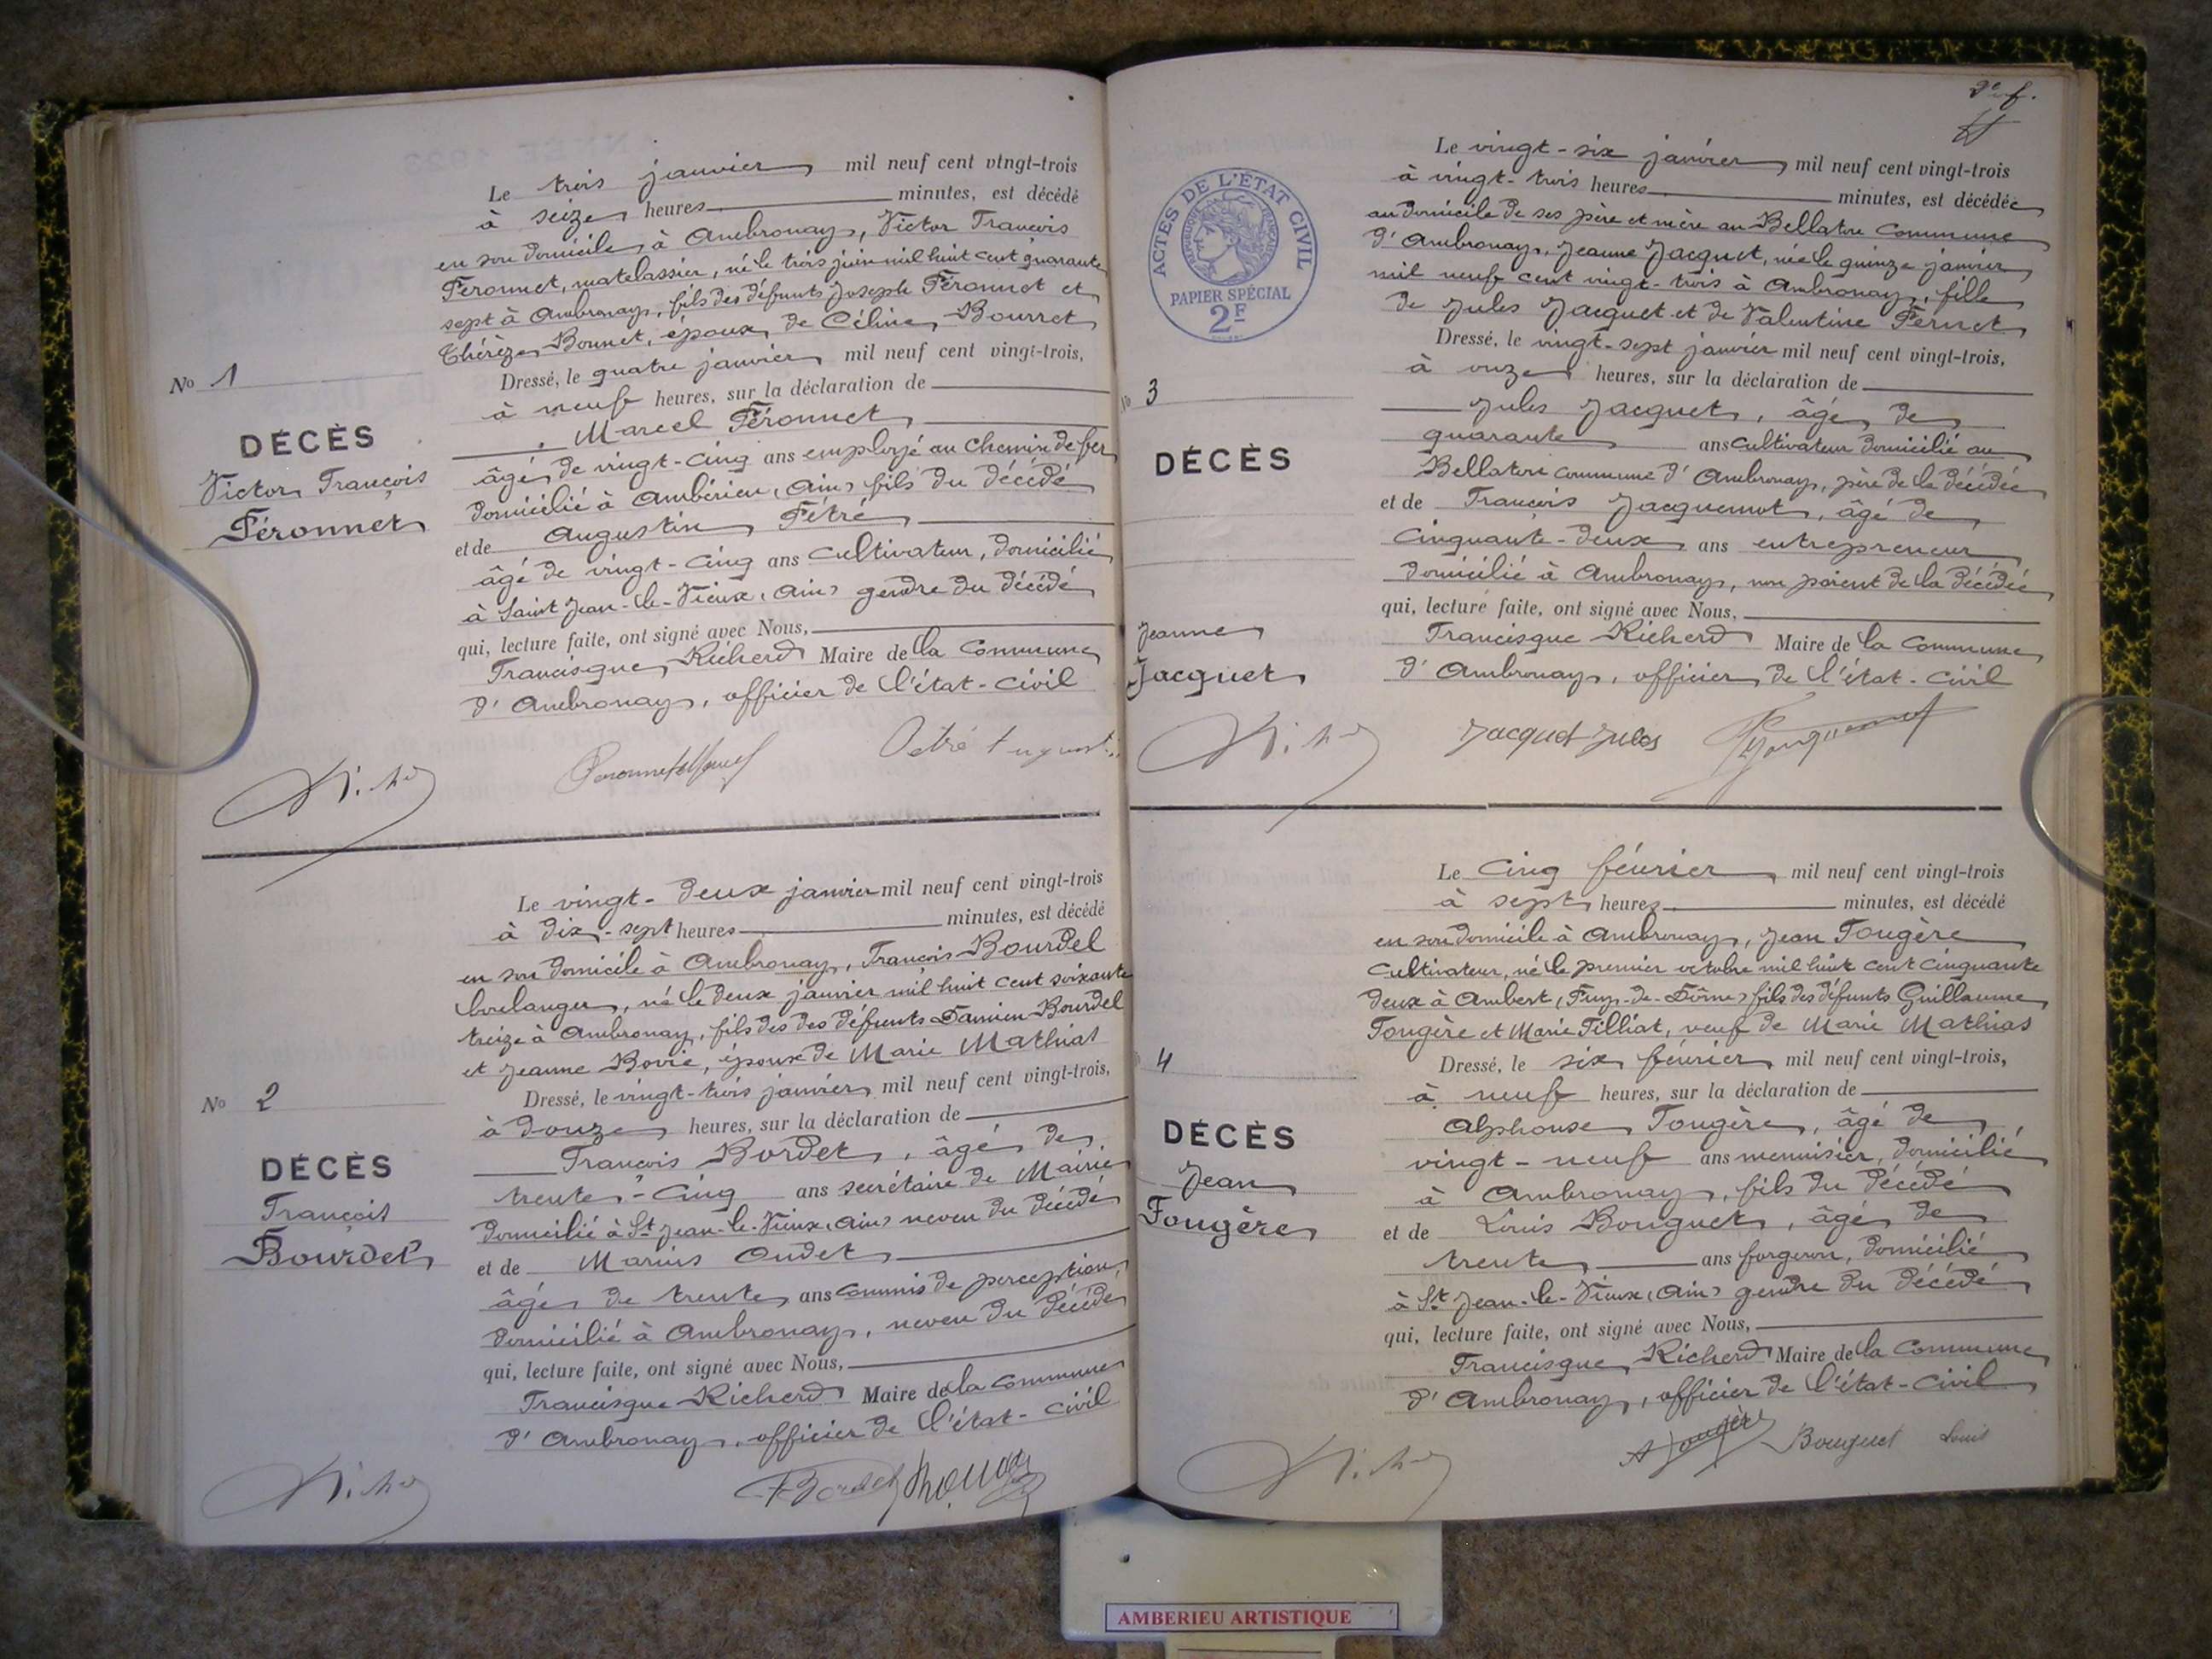 Le trois janvier mil neuf cent vingt-trois
à seize heures minutes, est décédé
en son domicile, à Ambronay, Victor François
Féronnet, matelassier, né le trois juin mil huit cent quarante
sept à Ambronay, fils des défunts Joseph Féronnet et
Thérèze Bonnet, époux de Céline Bourret
No 1
Dressé, le quatre janvier mil neuf cent vingt-trois,
à neuf heures, sur la déclaration de
Marcel Féronnet,
DÉCÈS
Victor François
Féronnet
âgé de vingt-cinq ans employé au chemin de fer
domicilié à Ambérieu, (Ain) fils du décédé
et de Augustin Pétré
âgé de vingt-cinq ans cultivateur, domicilié
à Saint Jean-le-Vieux, (Ain) gendre du décédé
qui, lecture faite, ont signé avec Nous,
Francisque Richerd Maire de la Commune
d'Ambronay, officier de l'état-civil
Le vingt-deux janvier mil neuf cent vingt-trois
à dix-sept heures minutes, est décédé
en son domicile à Ambronay, François Bourdel
boulanger, né le deux janvier mil huit cent soixante
treize à Ambronay, fils des des défunts Damien Bourdel
et Jeanne Bovie, époux de Marie Mathias
No 2
Dressé, le vingt-trois janvier mil neuf cent vingt-trois,
à douze heures, sur la déclaration de
DÉCÈS
François
Bourdel
François Bordet, âgé de
trente-cinq ans secrétaire de Mairie
domicilié à St Jean-le-Vieux, (Ain) neveu du décédé
et de Marius Oudet
âgé de trente ans commis de perception,
domicilié à Ambronay, neveu du décédé
qui, lecture faite, ont signé avec Nous,
Francisque Richerd Maire de la Commune
d'Ambronay, officier de l'état-civil
ACTES DE L'ÉTAT CIVIL
RÉPUBLIQUE FRANÇAISE
PAPIER SPÉCIAL
2F
Le vingt-six janvier mil neuf cent vingt-trois
à vingt-trois heures minutes, est décédée
au domicile de ses père et mère au Bellaton Commune
d'Ambronay, Jeanne Jacquet, née le quinze janvier
mil neuf cent vingt-trois à Ambronay, fille
de Jules Jacquet et de Valentine Pernet
Dressé, le vingt-sept janvier mil neuf cent vingt-trois,
à onze heures, sur la déclaration de
3
DÉCÈS
Jeanne
Jacquet
Jules Jacquet, âgé de
quarante ans cultivateur domicilié au
Bellaton commune d'Ambronay, père de la décédée
et de François Jacquemot, âgé de
cinquante-deux ans entrepreneur
domicilié à Ambronay, non parent de la décédée
qui, lecture faite, ont signé avec Nous,
Francisque Richerd Maire de la Commune
d'Ambronay, officier de l'état-civil
Jacquet Jules
Le cinq février mil neuf cent vingt-trois
à sept heures minutes, est décédé
en son domicile à Ambronay, Jean Fougère
cultivateur, né le premier octobre mil huit cent cinquante
deux à Ambert, (Puy-de-Dôme) fils des défunts Guillaume
Fougère et Marie Pilliat, veuf de Marie Mathias
4
Dressé, le six février mil neuf cent vingt-trois,
à neuf heures, sur la déclaration de
DÉCÈS
Jean
Fougère
Alphonse Fougère, âgé de
vingt-neuf ans menuisier, domicilié
à Ambronay, fils du décédé
et de Louis Bouguet, âgé de
trente ans forgeron, domicilié
à St Jean-le-Vieux, (Ain) gendre du décédé
qui, lecture faite, ont signé avec Nous,
Francisque Richerd Maire de la Commune
d'Ambronay, officier de l'état-civil
A Fougère Bouguet Louis
AMBERIEU ARTISTIQUE